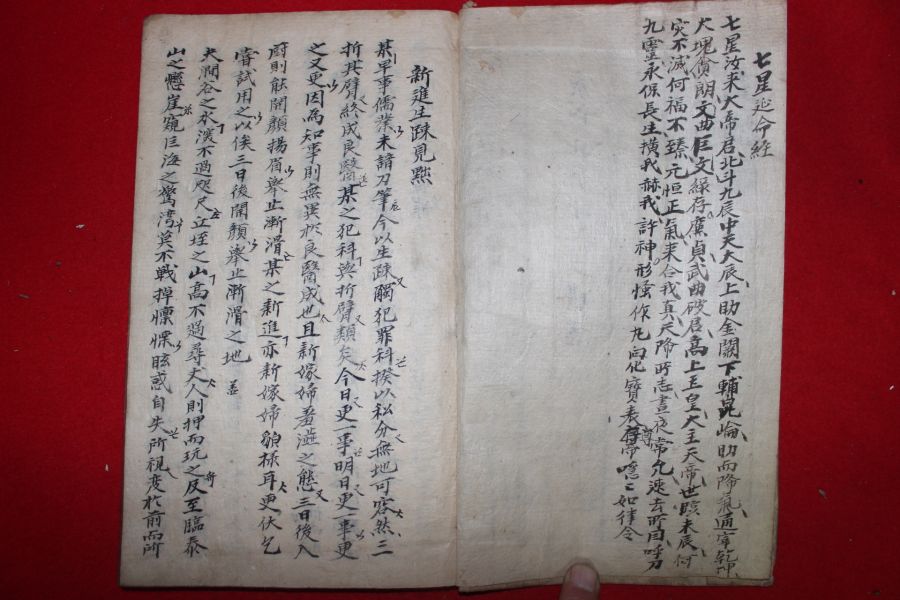 七星延命経
七星汝来大帝君北斗九辰中天大辰上助金闕下輔崑崙助而降氣通宰乾坤
大塊貪朗文曲巨文綠存廣貞武曲破启高上玉皇大主天帝世賅未辰何
灾不滅何福不臻元恒正氣来合我真天降所志晝夜常允速去所自呼刀
九灵永保長生橫我赫我許神形慅作尤向化寶表存帝噫〻如律令
新進生踈見黜
某早事儒業未諳刀筆今以生踈觸犯罪科揆以私分無地可容然三
折其臂終成良醫某之犯科與折臂類矣今日更一事明日更一事更
之又更因為知事則無異於良醫成也且新嫁婦羞澁之態三日後入
厨則能開顏揚眉舉止漸滑某之新進亦新嫁婦貌樣耳更伏乞
嘗試用之以俟三日後開顏舉止漸滑之地
大澗谷之水淺不過咫尺立垤之山高不過尋丈人則押而玩之及至臨泰
山之懸崖窺巨海之驚湾莫不戰掉慄慄眩惑自失所視度於前而所